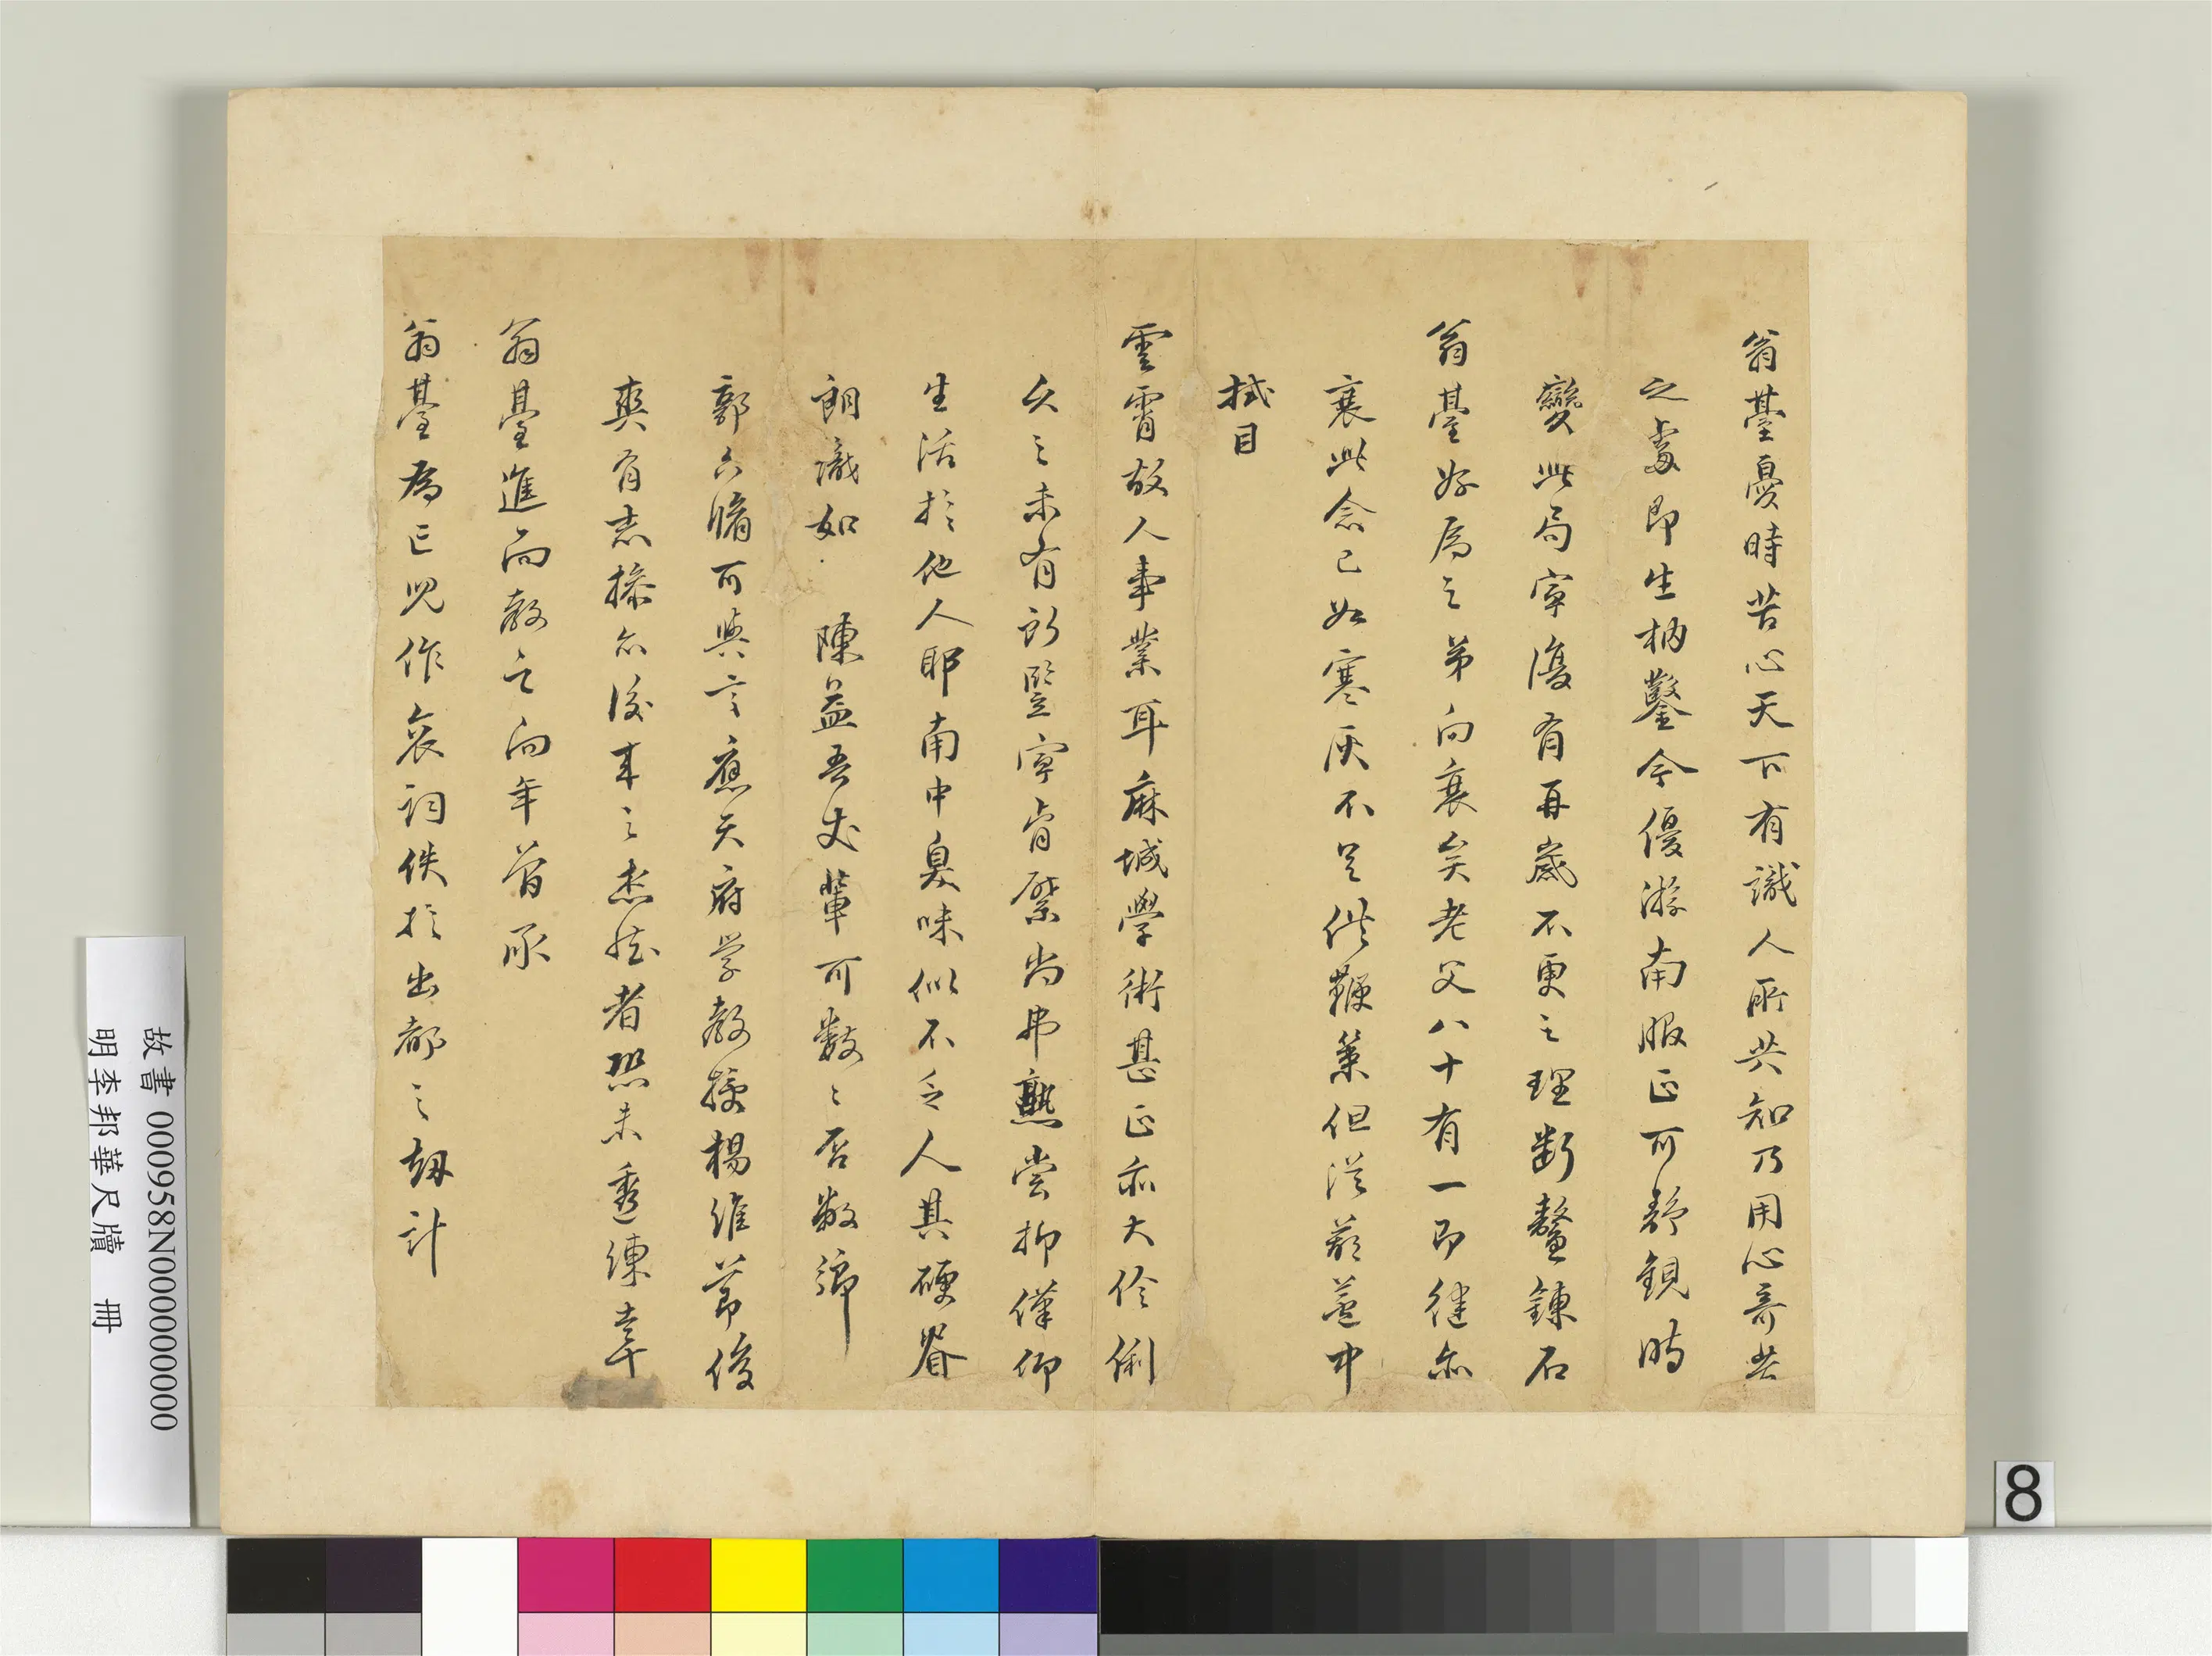 翁臺憂時苦心天下有識人所共知乃用心奇共
之處即生枘鑿今優游南服正可靜觀時
變此局寧復有再歲不更之理斷鼇鍊石
翁臺好為之弟向衰矣老父八十有一即健亦
衰此念已如寒灰不足供鞭策但從蓋中
拭目
雲霄故人事業耳麻城學術甚正亦大伶俐
久之未有所豎寧肯綮尚弗熟嘗抑僅仰
生活於他人耶南中臭味似不乏人其硬脊
朗識如 陳益吾丈輩可數數否敝鄉
郭六脩可與言應天府學教授楊維節俊
爽有志操亦後來之杰然者恐未透練幸
翁臺進而教之向年曾承
翁臺為亡兒作哀詞佚於出都之劫計
故書000958N000000000
明李邦華尺牘 冊
8